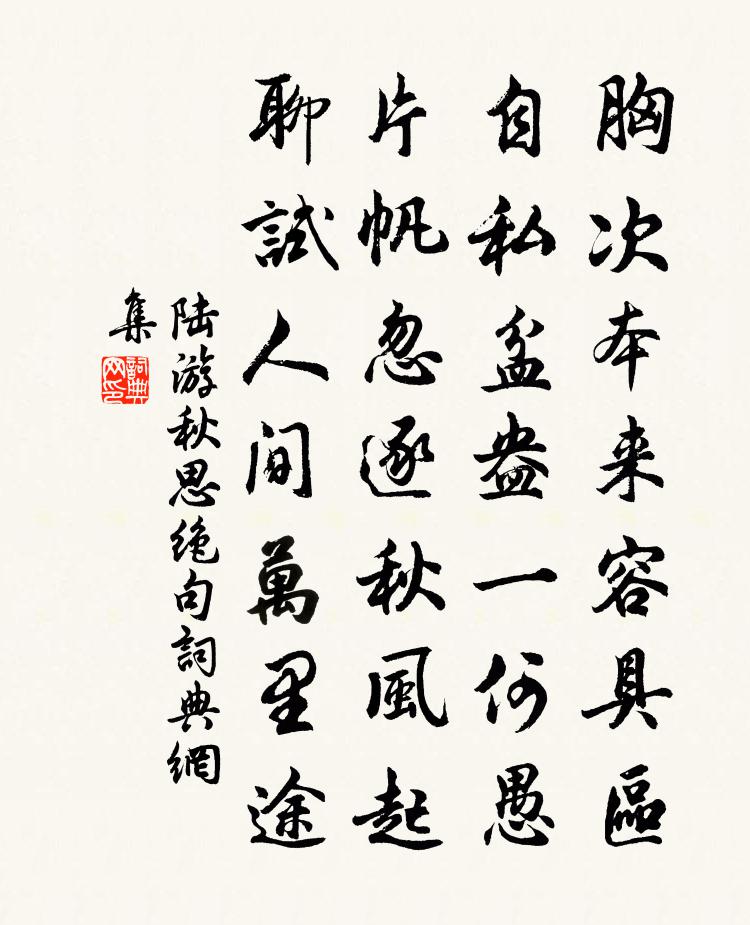 胸次本来容具區
自私盆盎一何愚
片帆忽逐秋風起
聊試人间萬里途
陆游秋思绝句詞典網
集
詞典网印